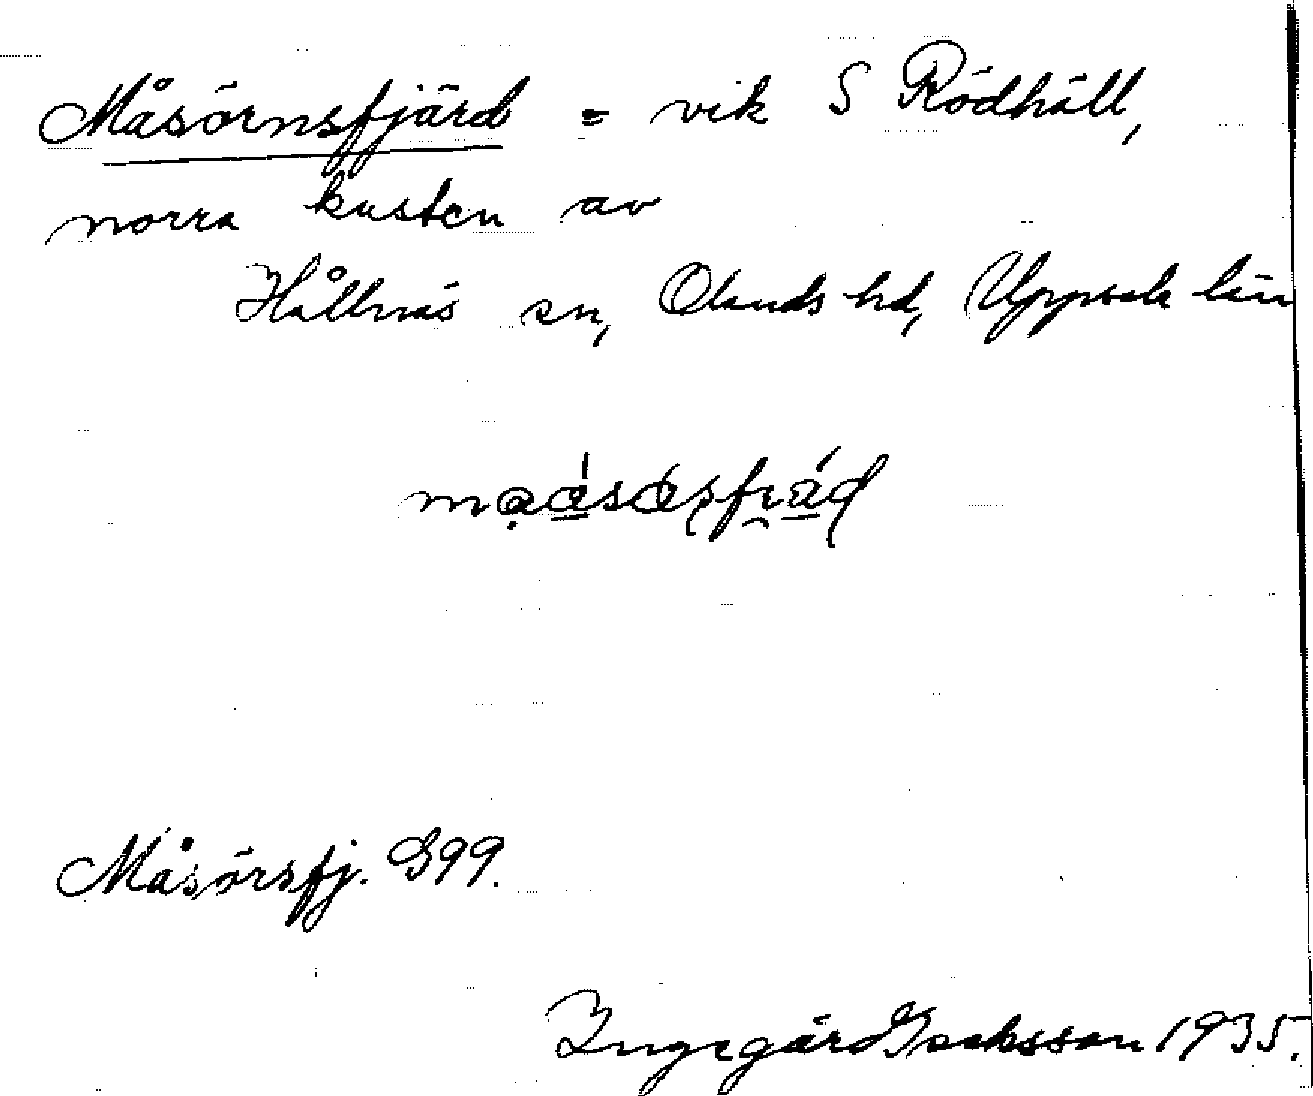 Måsörnsfjärd = vik S Rödhäll,
norra kusten av
Hållnäs sn, Olands hd, Uppsala län
Måsörsfj. G99.
Ingegärd Isaksson 1935.